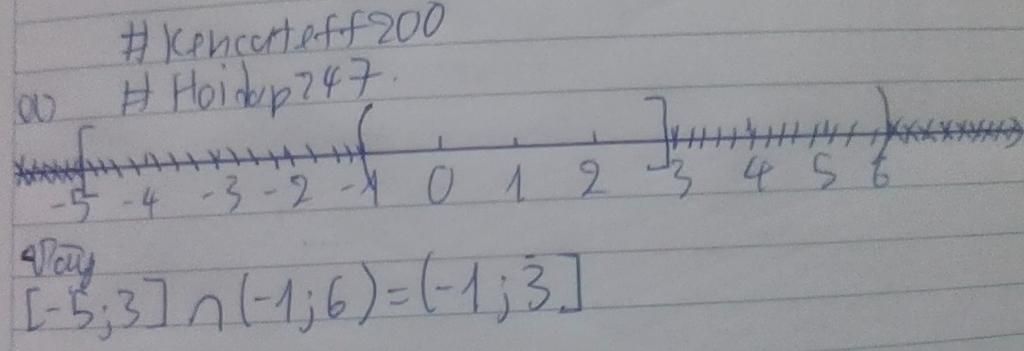 #Kencarteff200
a) #Hoidap247.
-5 -4 -3 -2 -1 0 1 2 3 4 5 6
Vậy
[-5;3] ∩ (-1;6) = (-1;3]